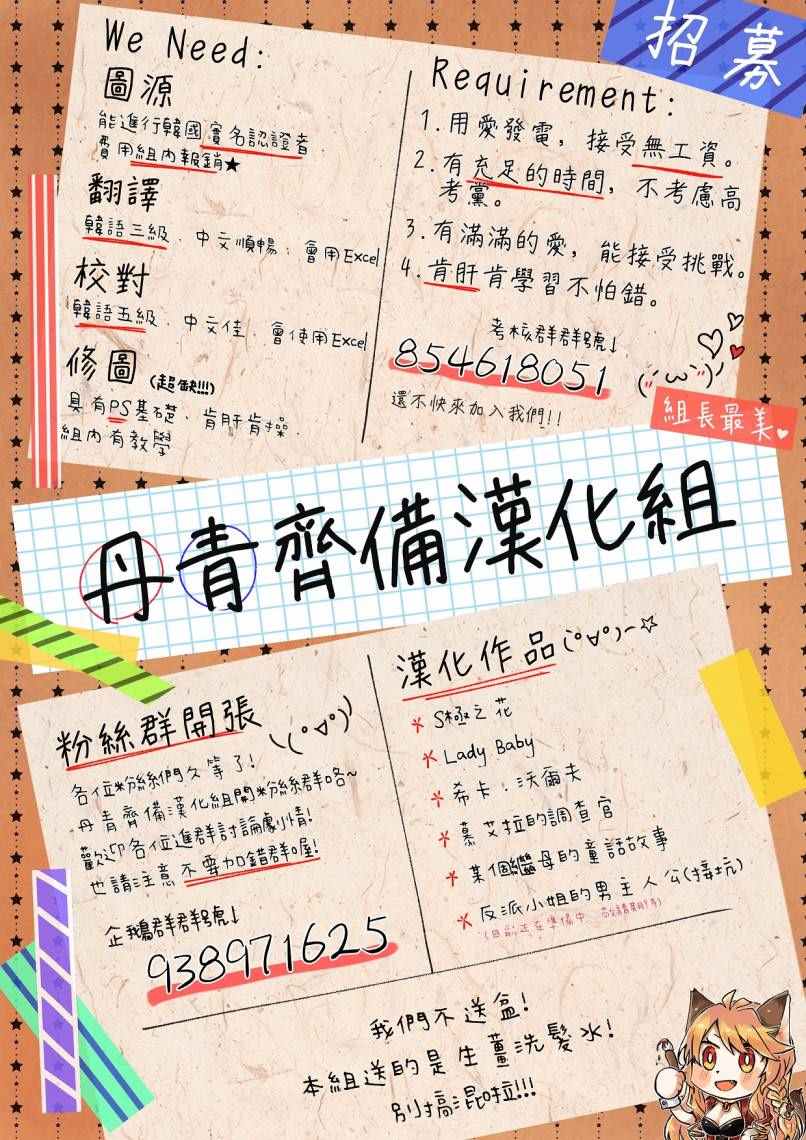 招募
We Need:
圖源
能進行韓國實名認證者
費用組內報銷★
翻譯
韓語三級、中文順暢、會用Excel
校對
韓語五級、中文佳、會使用Excel
修圖(超缺!!!)
具有PS基礎、肯肝肯操、
組內有教學
Requirement:
1.用愛發電，接受無工資。
2.有充足的時間，不考慮高
考黨。
3.有滿滿的愛，能接受挑戰。
4.肯肝肯學習不怕錯。
考核群群號↓
854618051
還不快來加入我們!!
組長最美♥
丹青齊備漢化組
粉絲群開張
各位粉絲們久等了!
丹青齊備漢化組開粉絲群咯~
歡迎各位進群討論劇情!
也請注意不要加錯群喔!
企鵝群群號↓
938971625
漢化作品(°∀°)~☆
S極之花
Lady Baby
希卡·沃爾夫
慕艾拉的調查官
某個繼母的童話故事
反派小姐的男主人公(接坑)
(目前正在準備中，敬請期待)
我們不送盒!
本組送的是生薑洗髮水!
別搞混啦!!!